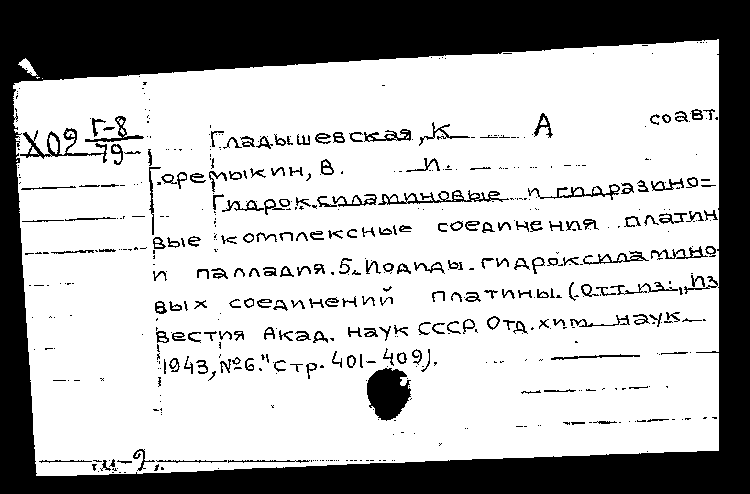 Х09 Г-8/79
Гладышевская, К А соавт.
Горемыкин, В. И.
Гидроксиламиновые и гидразино=
вые комплексные соединения платин
и палладия. 5. Иодиды. гидроксиламино
вых соединений платины. (Отт. из: „Из
вестия Акад. наук СССР. Отд. хим. наук.
1943, №6." Стр. 401-409).